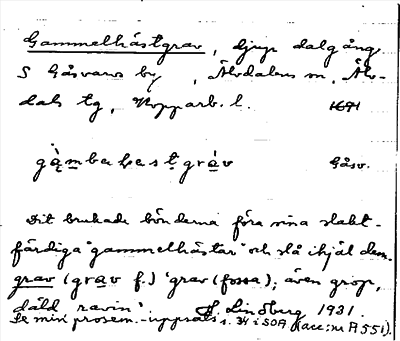 Gammelhästgrav, djup dalgång
S Gåsvarvs by, Älvdalens sn, Älv-
dals tg, Kopparb. l. 1691
gàmbahestgràv Gåsv.
Dit brukade bönderna föra sina slakt-
färdiga "gammelhästar" och slå ihjäl dem.
grav (grav f.) 'grav (fossa); även grop,
däld ravin'. G. Lindberg 1931.
Se min prosem.-uppsats s. 34 i SOA (acc: nr A 551).